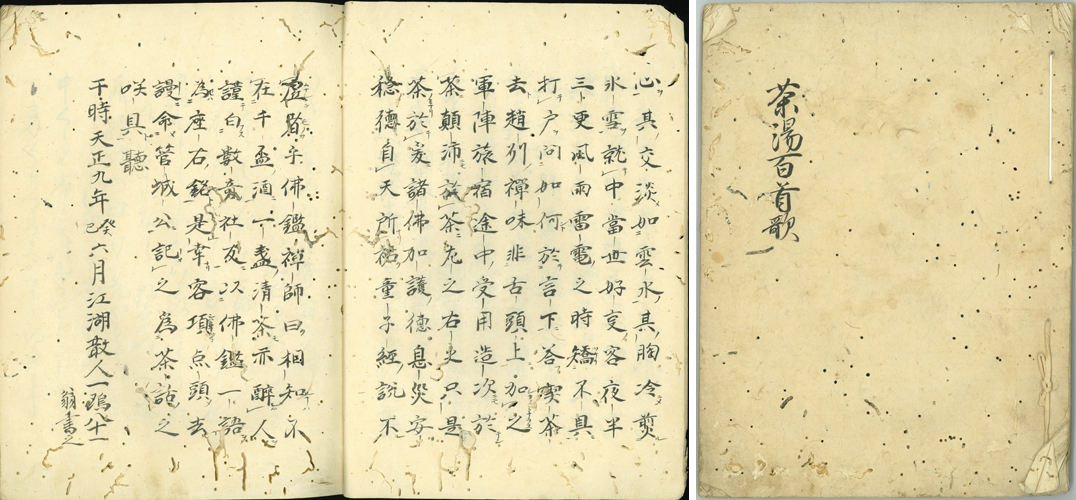 茶湯百首歌
心其交淡如雲水其胸冷煎
氷雪就中當世好客夜半
三更風雨雷電之時矯不具
打戸問如何於言下答喫茶
去趙州禅味非舌頭上加之
軍陣旅宿途中受用造次於
茶顛沛於茶左之右之只是
茶於爰諸佛加護徳息災安
穏徳自天所祐童子経説不
虚乎佛鑑禅師曰相知不
在千盃酒一盞清茶亦酔人
謹白数竒社友以佛鑑一語
為座右銘是幸容項点頭去
謾命管城公記之為茶話之
咲具聽
于時天正九年癸巳六月江湖散人一鴎八十一
翁書之